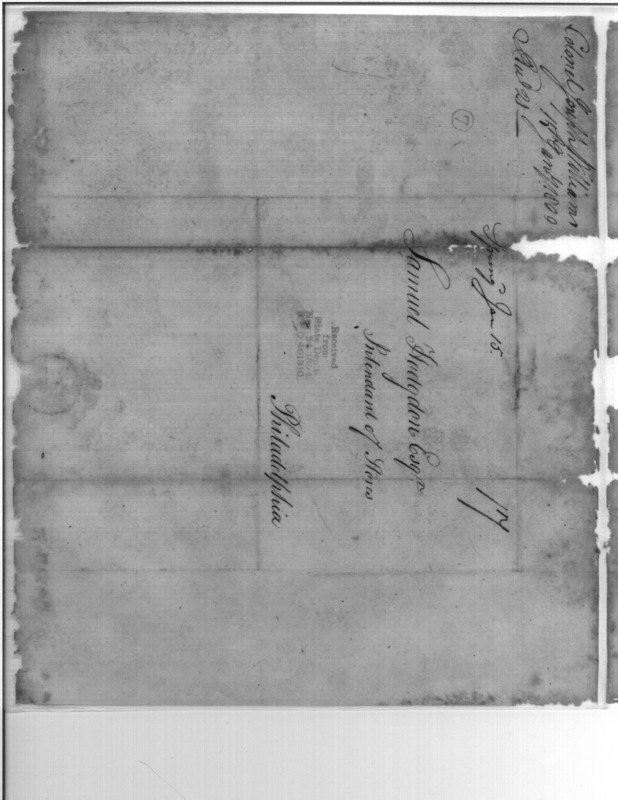 Colonel Joseph Williams
15th Jany 1800
Spring.d Jan 15
17
Samuel Hodgdon Esqr
Intendant of Stores
Philadelphia
7
Received
from
State Dep't.